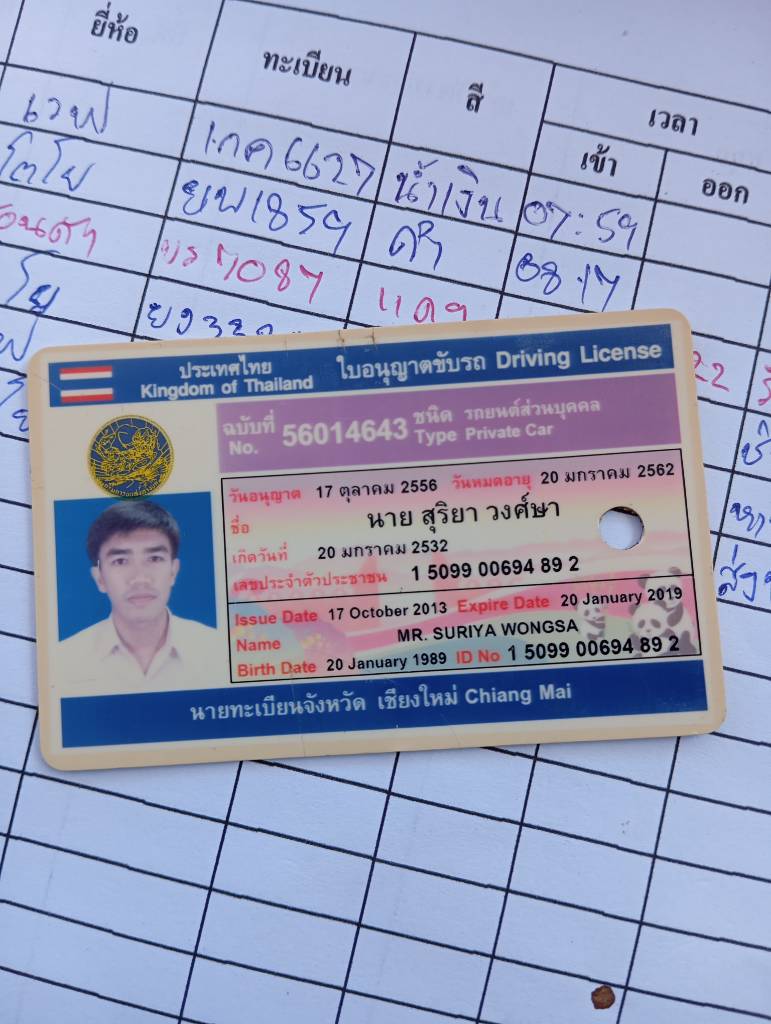 ยี่ห้อ ทะเบียน สี เวลา
เข้า ออก
เวฟ 1กค6627 น้ำเงิน 07:59
โตโย ยพ1859 ดำ 08.17
7087 แดง
22
ประเทศไทย ใบอนุญาตขับรถ Driving License
Kingdom of Thailand
ฉบับที่ 56014643 ชนิด รถยนต์ส่วนบุคคล
No. Type Private Car
วันอนุญาต 17 ตุลาคม 2556 วันหมดอายุ 20 มกราคม 2562
ชื่อ นาย สุริยา วงศ์ษา
เกิดวันที่ 20 มกราคม 2532
เลขประจำตัวประชาชน 1 5099 00694 89 2
Issue Date 17 October 2013 Expire Date 20 January 2019
Name MR. SURIYA WONGSA
Birth Date 20 January 1989 ID No 1 5099 00694 89 2
นายทะเบียนจังหวัด เชียงใหม่ Chiang Mai